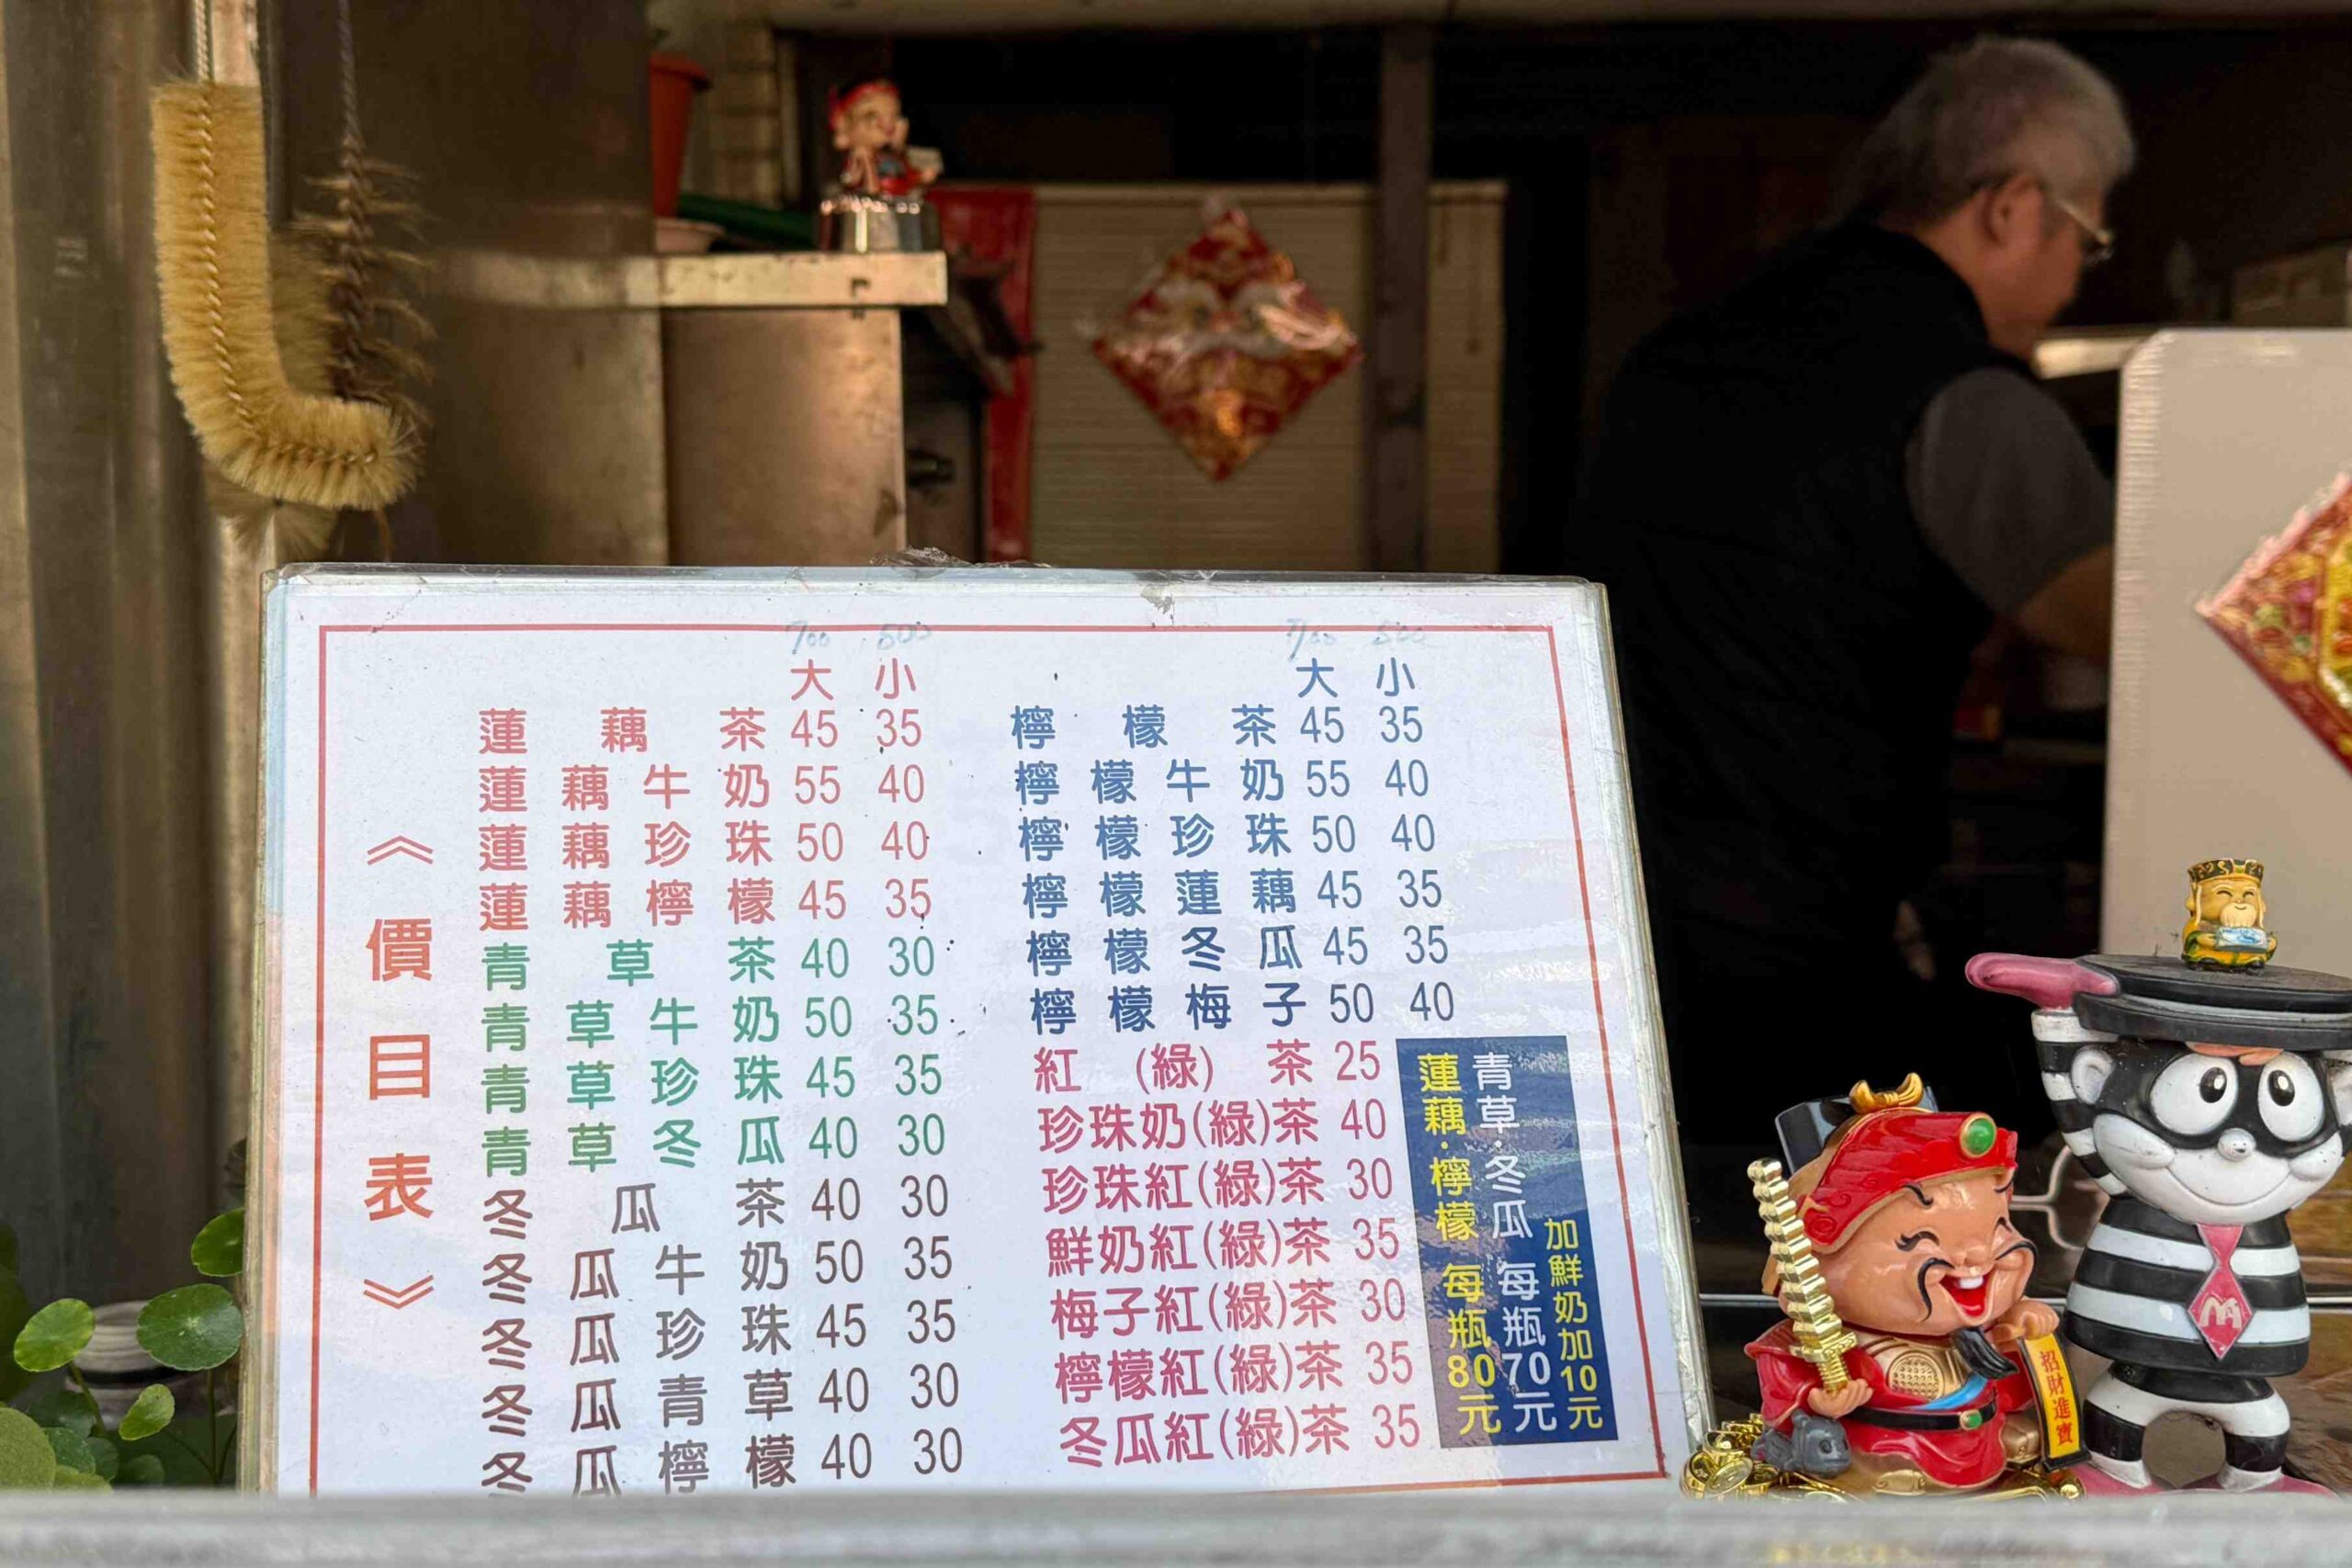 《價目表》
700 500
大 小
蓮藕茶 45 35
蓮藕牛奶 55 40
蓮藕珍珠 50 40
蓮藕檸檬 45 35
青草茶 40 30
青草牛奶 50 35
青草珍珠 45 35
青草冬瓜 40 30
冬瓜茶 40 30
冬瓜牛奶 50 35
冬瓜珍珠 45 35
冬瓜青草 40 30
冬瓜檸檬 40 30
700 500
大 小
檸檬茶 45 35
檸檬牛奶 55 40
檸檬珍珠 50 40
檸檬蓮藕 45 35
檸檬冬瓜 45 35
檸檬梅子 50 40
紅(綠)茶 25
珍珠奶(綠)茶 40
珍珠紅(綠)茶 30
鮮奶紅(綠)茶 35
梅子紅(綠)茶 30
檸檬紅(綠)茶 35
冬瓜紅(綠)茶 35
蓮藕·檸檬 每瓶80元
青草·冬瓜 每瓶70元
加鮮奶加10元
招財進寶
M